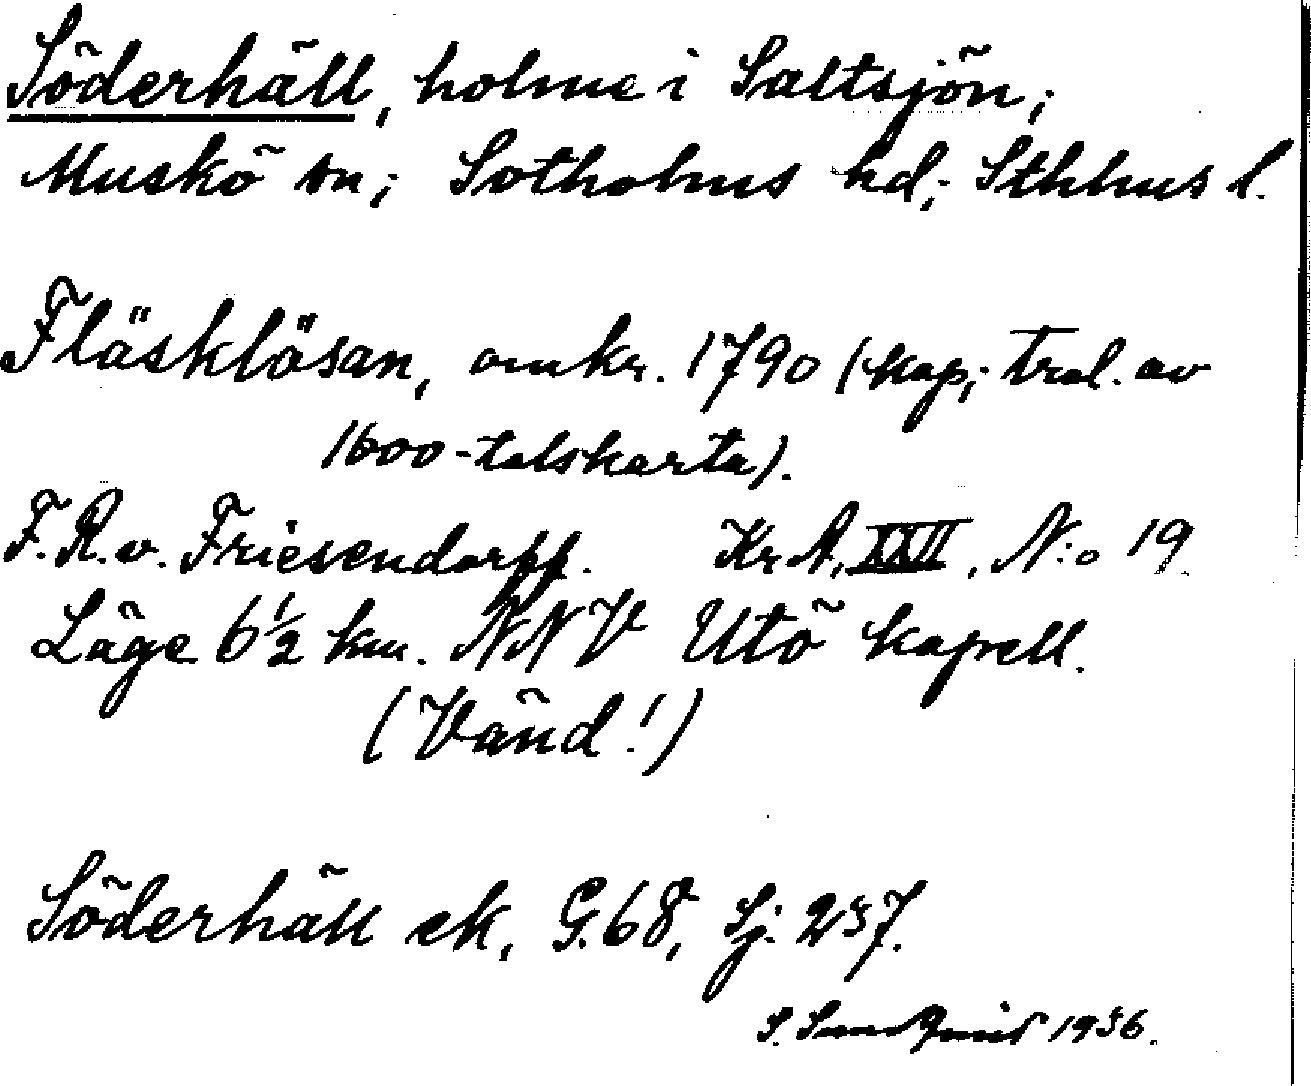 Söderhäll, holme i Saltsjön;
Muskö sn; Sotholms hd; Sthlms l.
Fläsklösan, omkr. 1790 (kop; trol. av
1600-talskarta).
F. R. v. Friesendorff. KrA, XXII, N:o 19
Läge 6½ km. NNV Utö kapell.
(Vänd!)
Söderhäll ek, G. 68, Sj. 237.
S. Sundquist 1936.